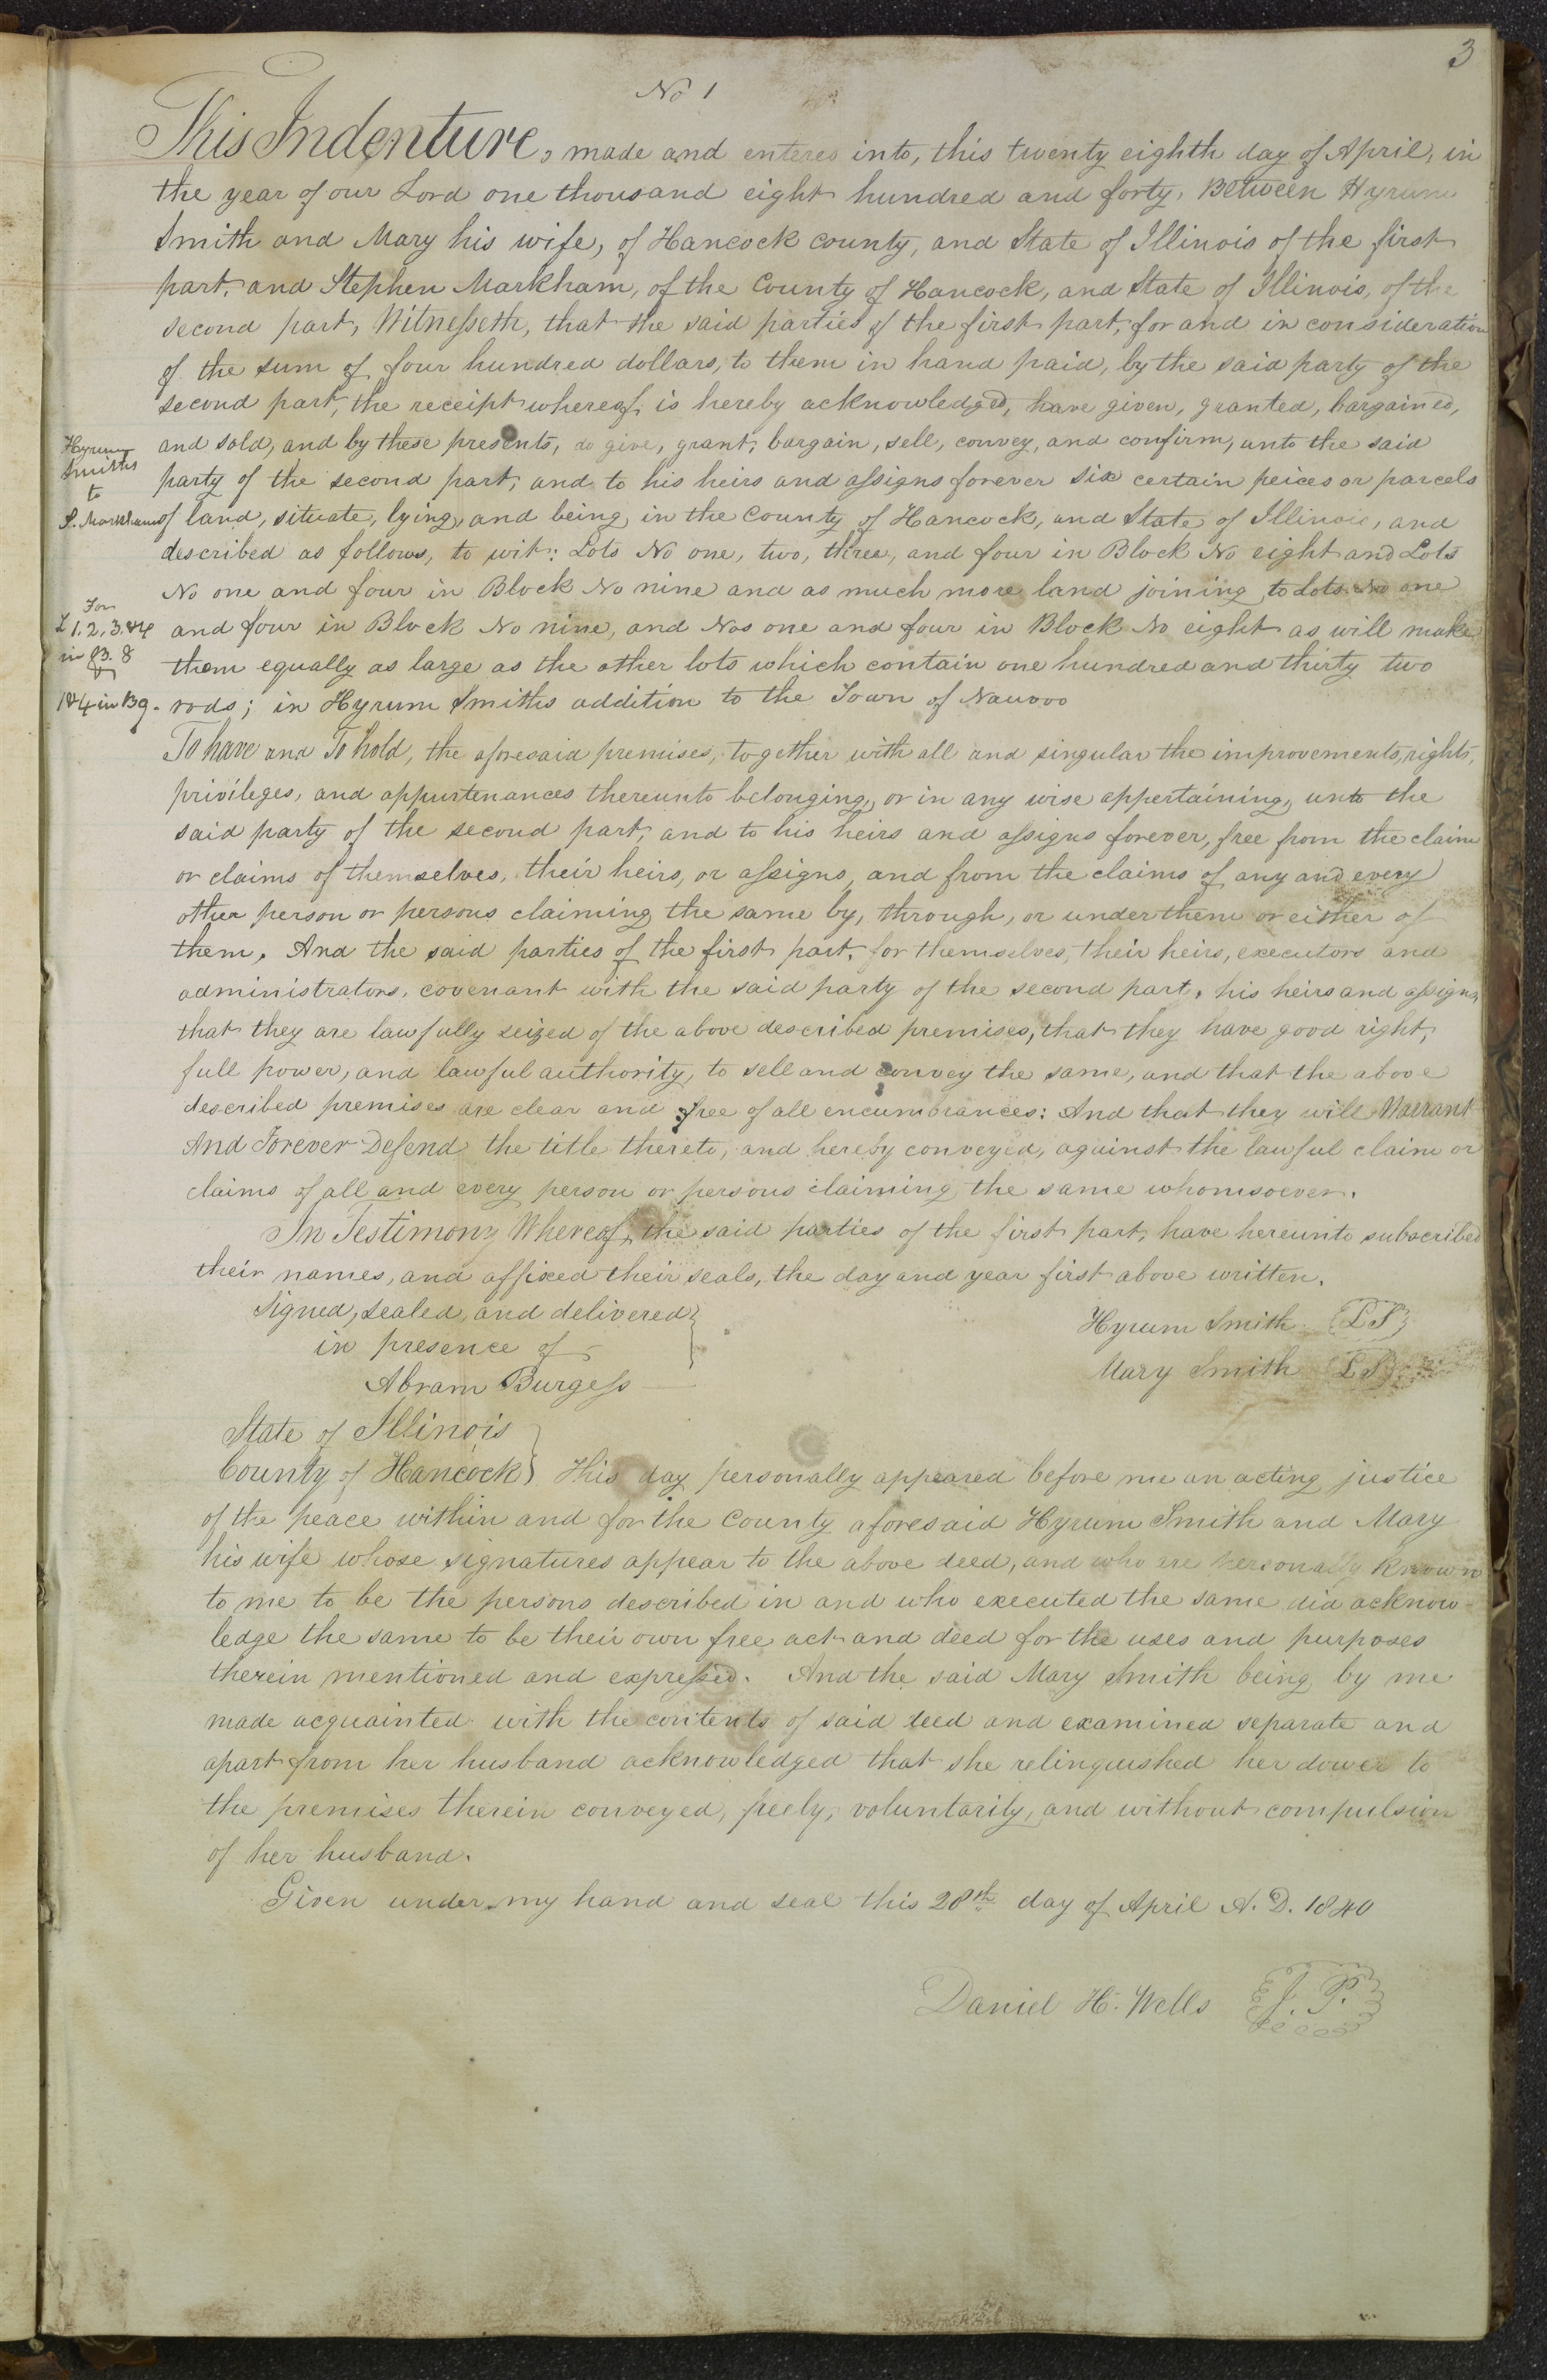 3
No 1
This Indenture, made and entered into, this twenty eighth day of April, in
the year of our Lord one thousand eight hundred and forty, Between Hyrum
Smith and Mary his wife, of Hancock county, and State of Illinois of the first
part, and Stephen Markham, of the County of Hancock, and State of Illinois, of the
second part, Witnesseth, that the said parties of the first part, for and in consideration
of the sum of four hundred dollars, to them in hand paid, by the said party of the
second part, the receipt whereof is hereby acknowledged, have given, granted, bargained,
and sold, and by these presents, do give, grant, bargain, sell, convey, and confirm, unto the said
party of the second part, and to his heirs and assigns forever six certain peices or parcels
of land, situate, lying, and being in the County of Hancock, and State of Illinois, and
described as follows, to wit: Lots No one, two, three, and four in Block No eight and Lots
No one and four in Block No nine and as much more land joining to Lots No one
and four in Block No nine, and Nos one and four in Block No eight as will make
them equally as large as the other lots which contain one hundred and thirty two
rods; in Hyrum Smiths addition to the Town of Nauvoo
Hyrum
Smiths
to
S. Markham
For
L 1. 2. 3. & 4
in B. 8
&
1 & 4 in B 9.
To have and To hold, the aforesaid premises, together with all and singular the improvements, rights,
privileges, and appurtenances thereunto belonging, or in any wise appertaining, unto the
said party of the second part, and to his heirs and assigns forever, free from the claim
or claims of themselves, their heirs, or assigns, and from the claims of any and every
other person or persons claiming the same by, through, or under them or either of
them. And the said parties of the first part, for themselves, their heirs, executors and
administrators, covenant with the said party of the second part, his heirs and assigns,
that they are lawfully seized of the above described premises, that they have good right,
full power, and lawful authority, to sell and convey the same, and that the above
described premises are clear and free of all encumbrances: And that they will Warrant
And Forever Defend the title thereto, and hereby conveyed, against the lawful claim or
claims of all and every person or persons claiming the same whomsoever.
In Testimony Whereof, the said parties of the first part, have hereunto subscribed
their names, and affixed their seals, the day and year first above written.
Signed, sealed, and delivered
in presence of
Abram Burgess
Hyrum Smith LS
Mary Smith LS
State of Illinois
County of Hancock } This day personally appeared before me an acting justice
of the peace within and for the County aforesaid Hyrum Smith and Mary
his wife whose signatures appear to the above deed, and who are personally known
to me to be the persons described in and who executed the same did acknow
ledge the same to be their own free act and deed for the uses and purposes
therein mentioned and expressed. And the said Mary Smith being by me
made acquainted with the contents of said deed and examined separate and
apart from her husband acknowledged that she relinquished her dower to
the premises therein conveyed, freely, voluntarily, and without compulsion
of her husband.
Given under my hand and seal this 28th day of April A. D. 1840
Daniel H. Wells J. P.